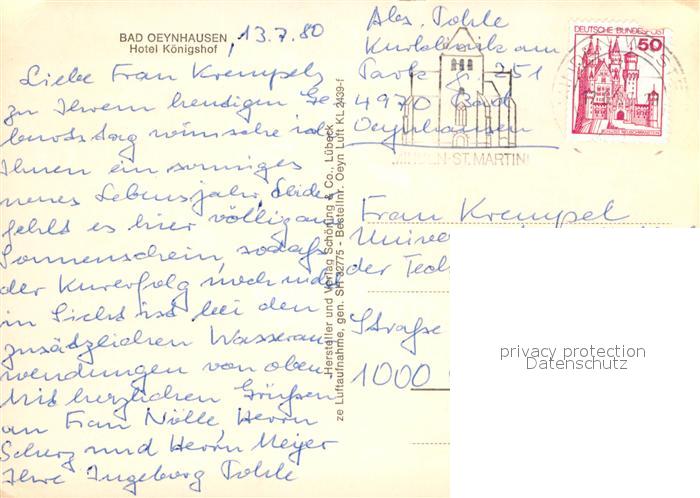 BAD OEYNHAUSEN
Hotel Königshof
13.7.80
Liebe Frau Krempel,
zu Ihrem heutigen Ge-
burtstag wünsche ich
Ihnen ein sonniges
neues Lebensjahr, leider
fehlt es hier völlig an
Sonnenschein, sodaß
der Kurerfolg noch nicht
in Sicht ist bei den
zusätzlichen Wasseran-
wendungen von oben.
Mit herzlichen Grüßen
an Frau Nölle, Herrn
Scherz und Herrn Meyer
Ihre Ingeborg Tohle
Hersteller und Verlag Schöning & Co., Lübeck
ze Luftaufnahme, gen. SH 32775 - Bestellnr. Oeyn Luft KL 2439-f
Abs. Tohle
Kurklinik am
Park Z. 251
4970 Bad
Oeynhausen
MINDEN-ST. MARTINI
DEUTSCHE BUNDESPOST
50
Frau Krempel
der
Straße
1000
privacy protection
Datenschutz